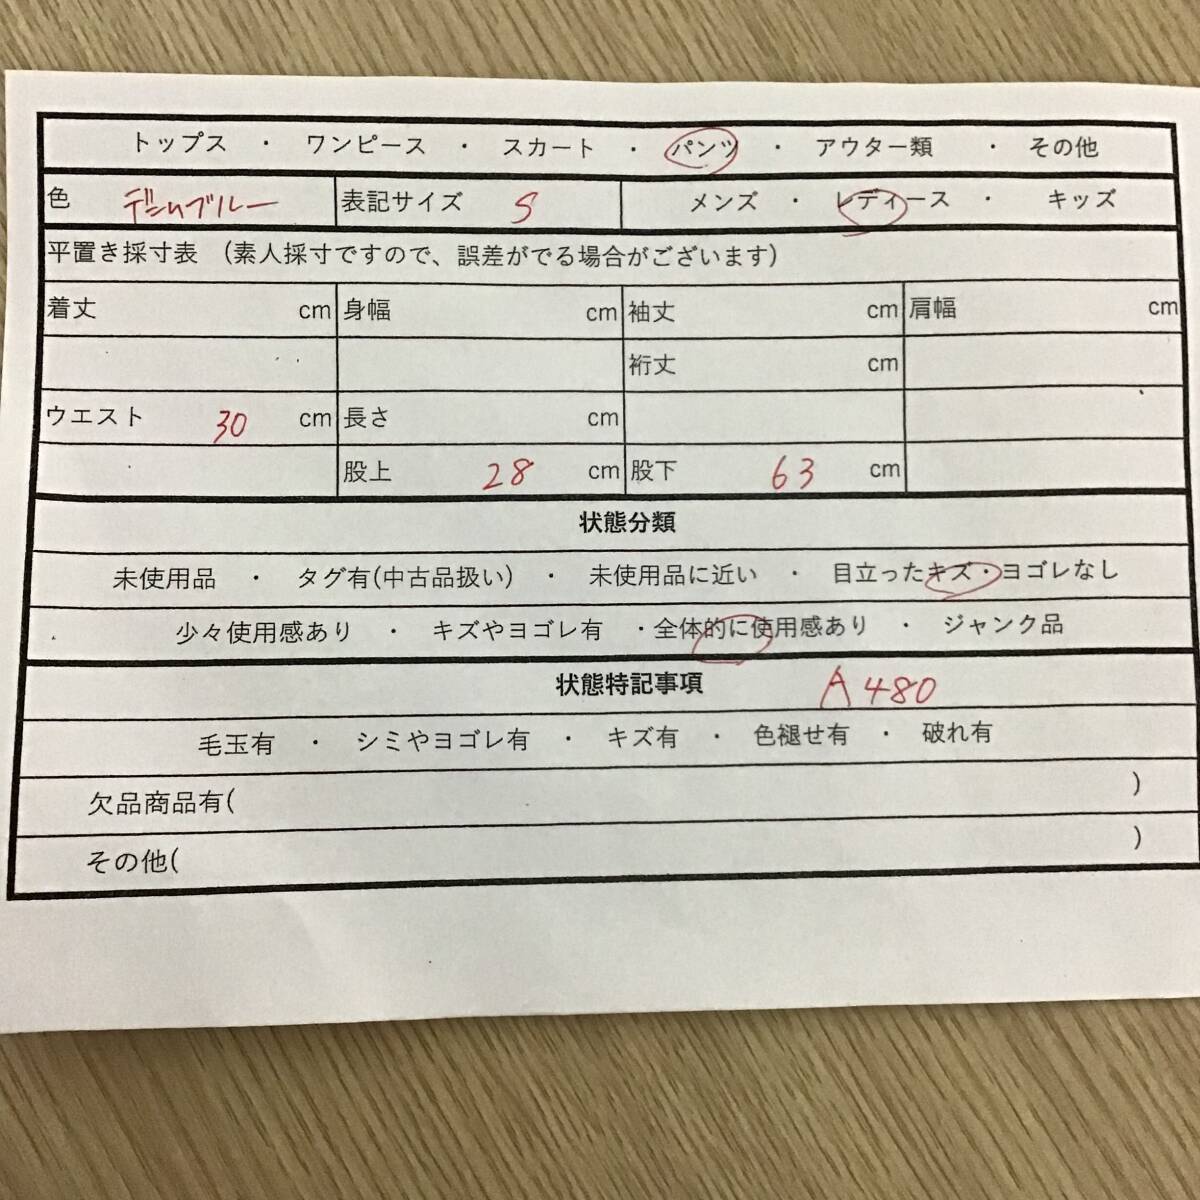 トップス ・ ワンピース ・ スカート ・ パンツ ・ アウター類 ・ その他
色 デニムブルー 表記サイズ S メンズ ・ レディース ・ キッズ
平置き採寸表 (素人採寸ですので、誤差がでる場合がございます)
着丈 cm 身幅 cm 袖丈 cm 肩幅 cm
裄丈 cm
ウエスト 30 cm 長さ cm
股上 28 cm 股下 63 cm
状態分類
未使用品 ・ タグ有(中古品扱い) ・ 未使用品に近い ・ 目立ったキズ・ヨゴレなし
少々使用感あり ・ キズやヨゴレ有 ・全体的に使用感あり ・ ジャンク品
状態特記事項 A480
毛玉有 ・ シミやヨゴレ有 ・ キズ有 ・ 色褪せ有 ・ 破れ有
欠品商品有( )
その他( )